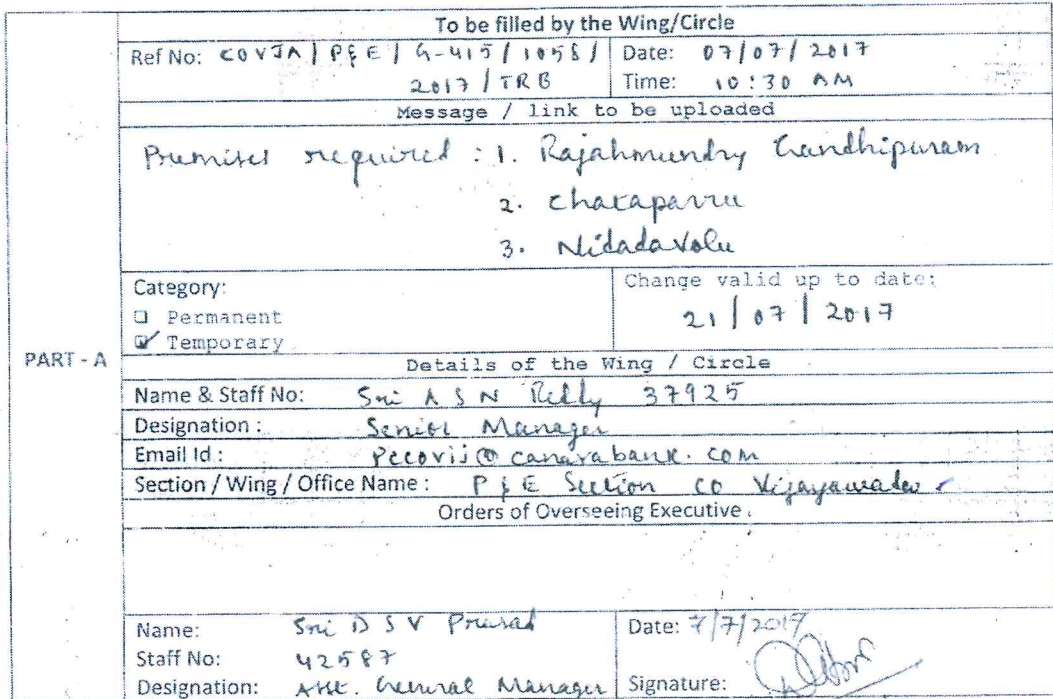 To be filled by the Wing/Circle
Ref No: COVJA / P&E / G-415 / 1058 / Date: 07/07/2017
2017 / TRB Time: 10:30 AM
Message / link to be uploaded
Premises required : 1. Rajahmundry Gandhipuram
2. Chataparru
3. Nidadavolu
Category: Change valid up to date:
Permanent 21/07/2017
Temporary
PART - A
Details of the Wing / Circle
Name & Staff No: Sri A S N Reddy 37925
Designation : Senior Manager
Email Id : pecovij@canarabank.com
Section / Wing / Office Name : P & E Section CO Vijayawada
Orders of Overseeing Executive.
Name: Sri D S V Prasad Date: 7/7/2017
Staff No: 42587
Designation: Asst. General Manager Signature: